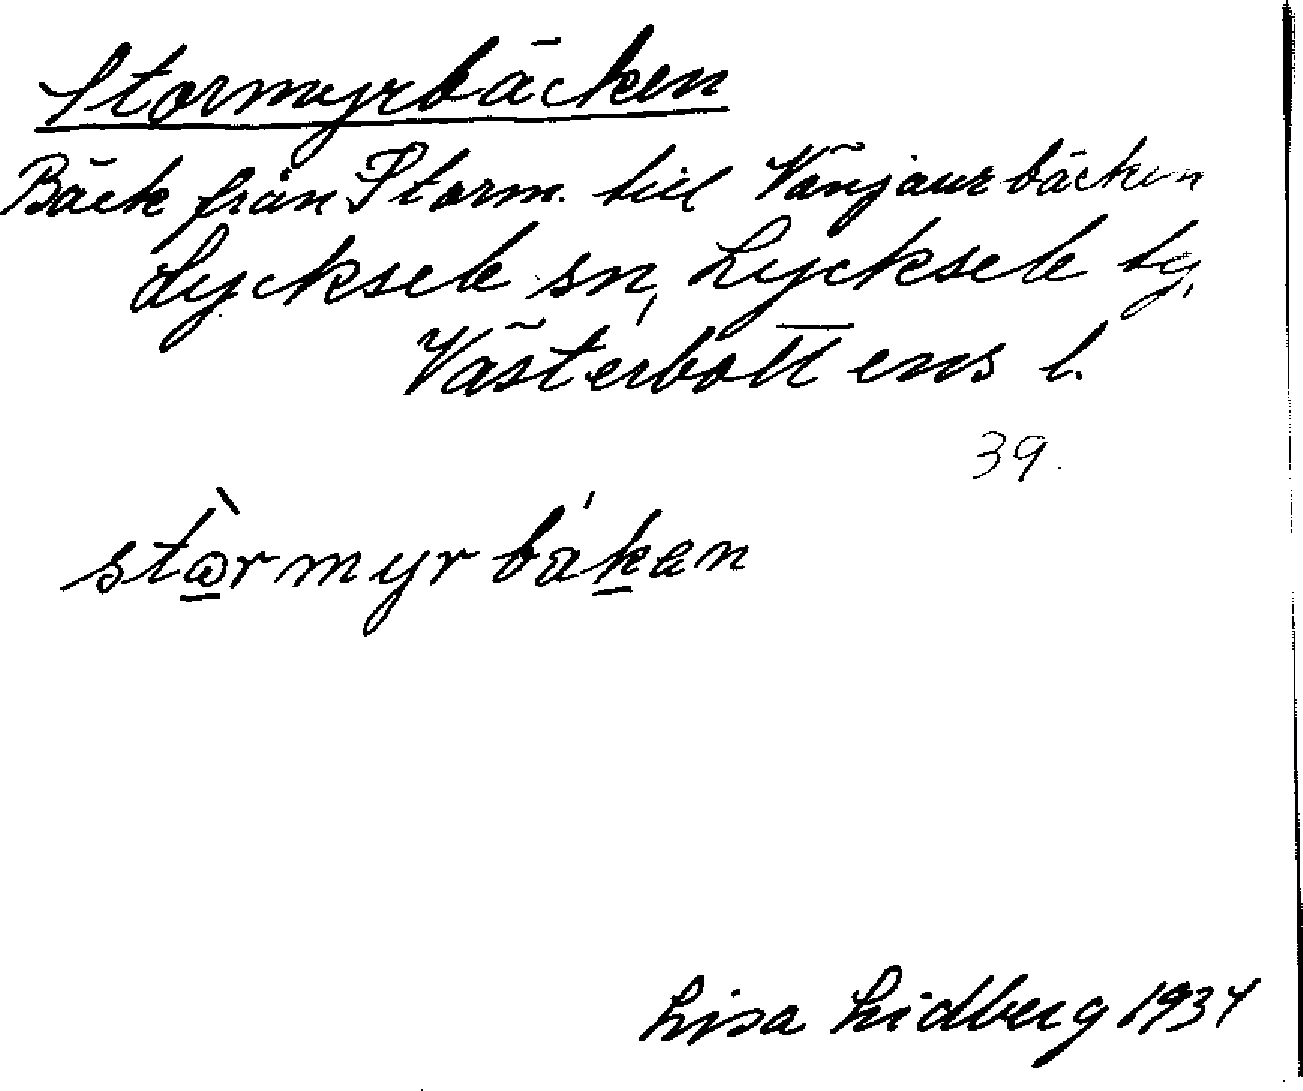 Stormyrbäcken
Bäck från Storm. till Vänjaurbäcken
Lycksele sn, Lycksele by,
Västerbottens l.
39.
stòrmyrbäkan
Lisa Lidberg 1934